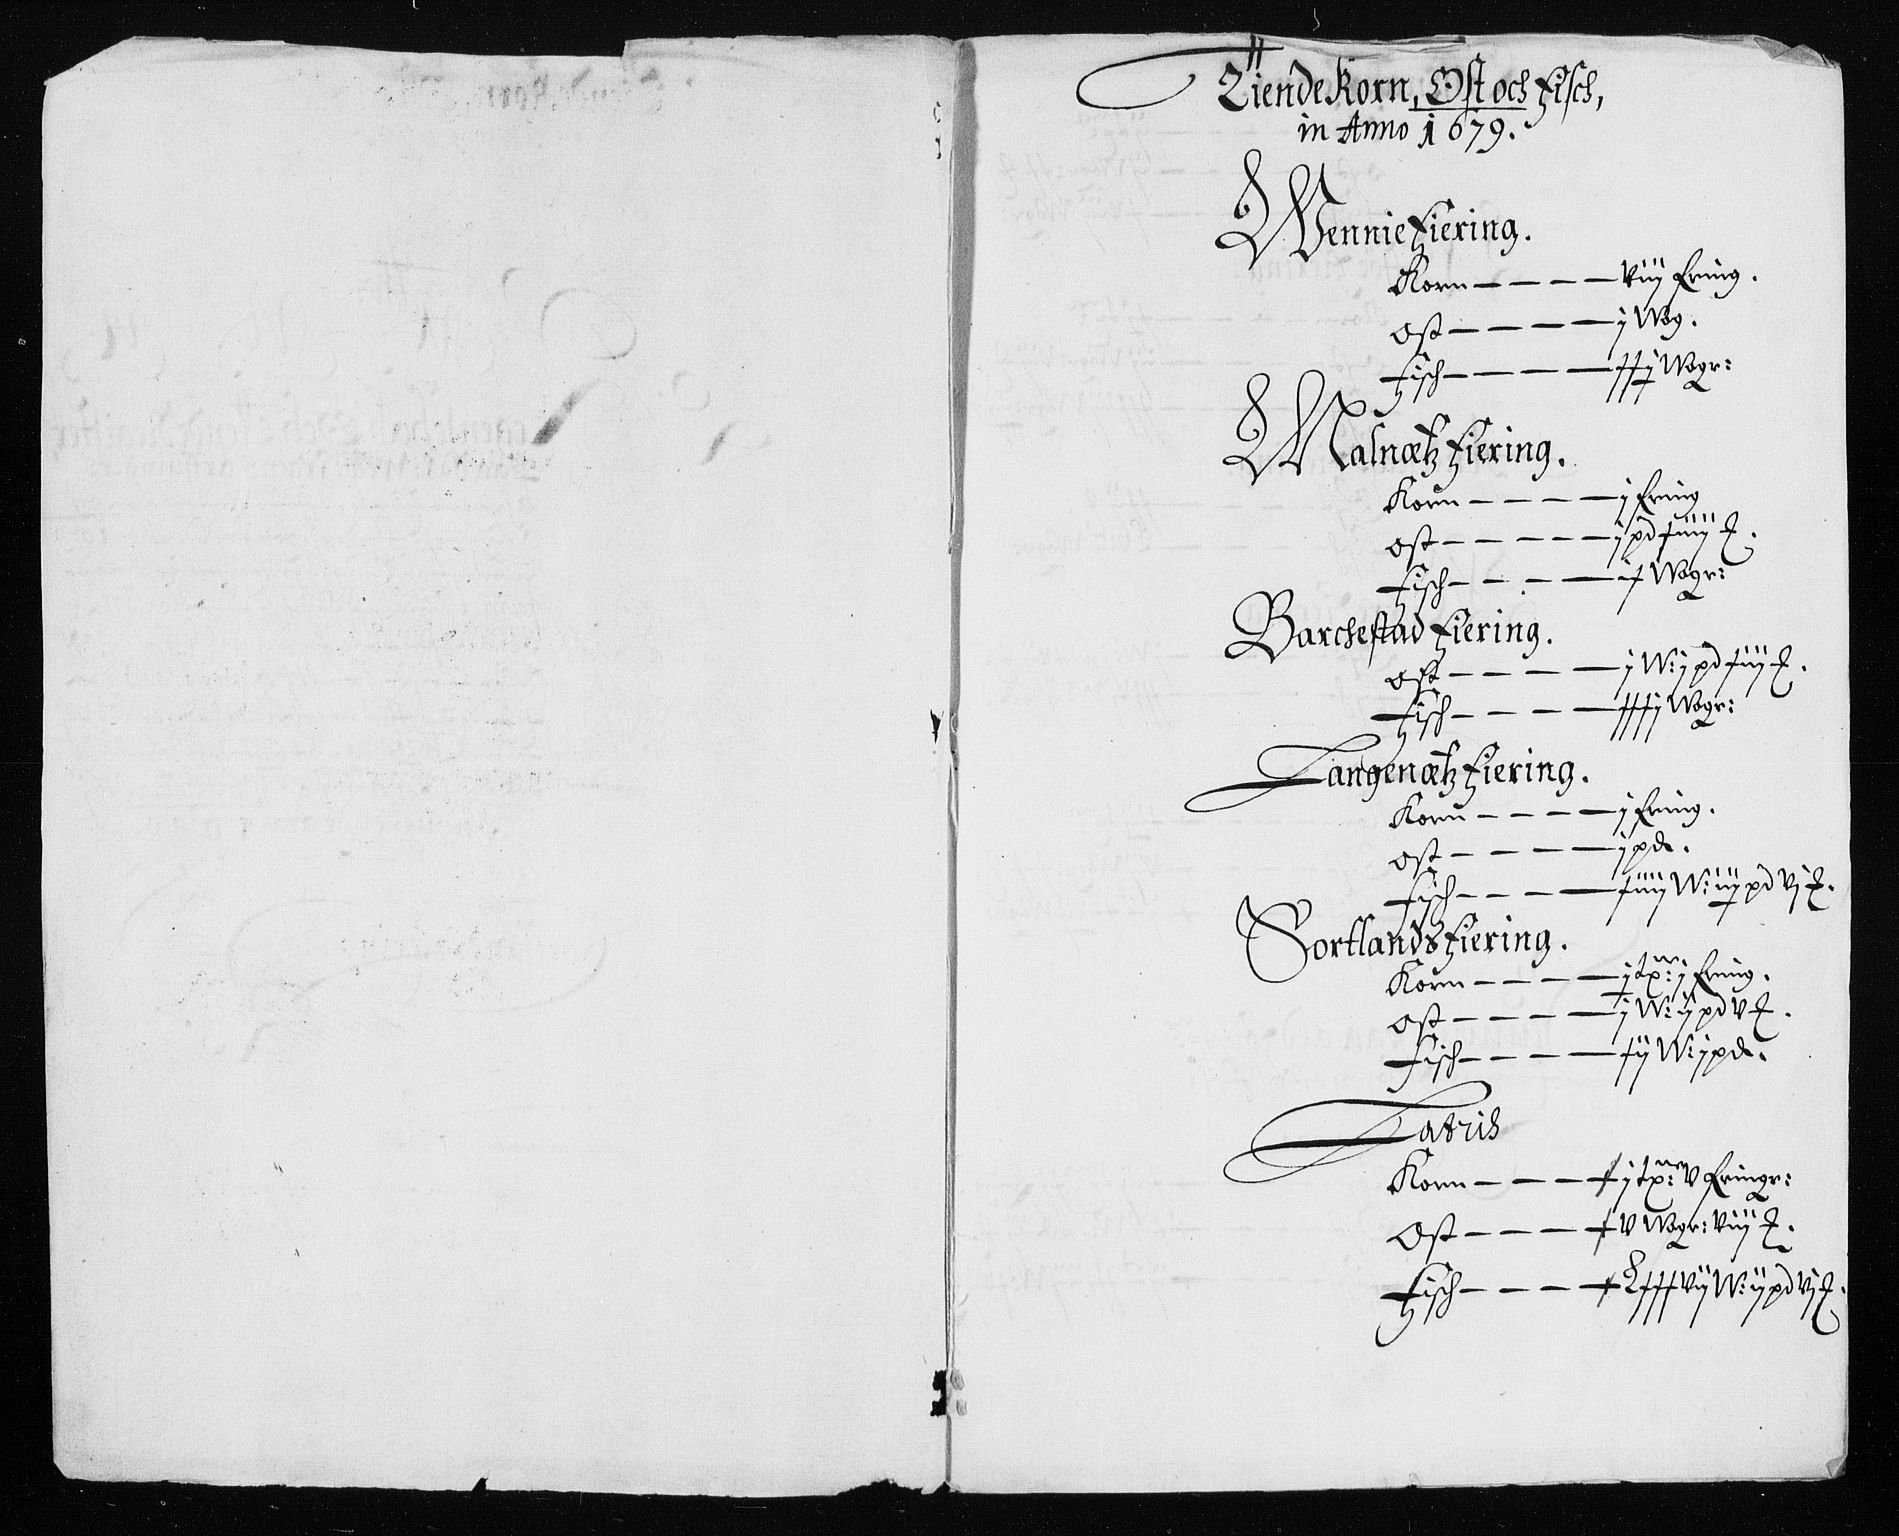 Tiende Korn, Ost och Fisch,
in Anno 1679.
Wennie Fiering.
Korn — — — — viij Ering.
Ost — — — — j Wog.
Fisch — — — — xxj Wogr:
Malnætz Fiering.
Korn — — — — j Ering
Ost — — — — j pd xiiij
Fisch — — — — ix Wogr:
Barchestad Fiering.
Ost — — — — j W: j pd xiij
Fisch — — — — xxxj Wogr:
Langenætz Fiering.
Korn — — — — j Ering.
Ost — — — — j pd.
Fisch — — — — xiiij W: ij pd vj
Sortlands Fiering.
Korn — — — — j Ering.
Ost — — — — j W: ij pd v
Fisch — — — — xij W: j pd.
Latris
Korn — — — — j v Eringr:
Ost — — — — v Wogr: viij
Fisch — — — — Lxxxvij W: ij pd vj